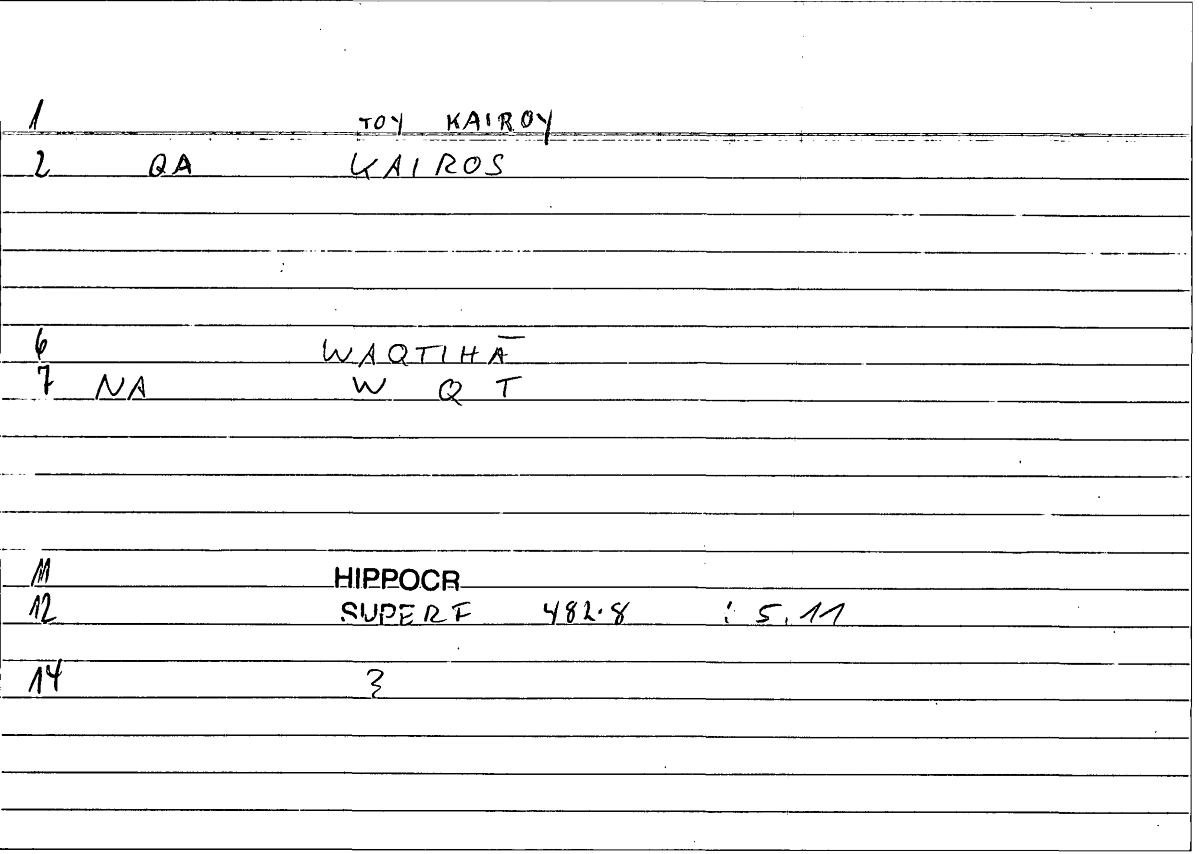 1 TOY KAIROY
2 QA KAIROS
6 WAQTIHĀ
7 NA W Q T
11 HIPPOCR
12 SUPERF 482.8 : 5,11
14 3